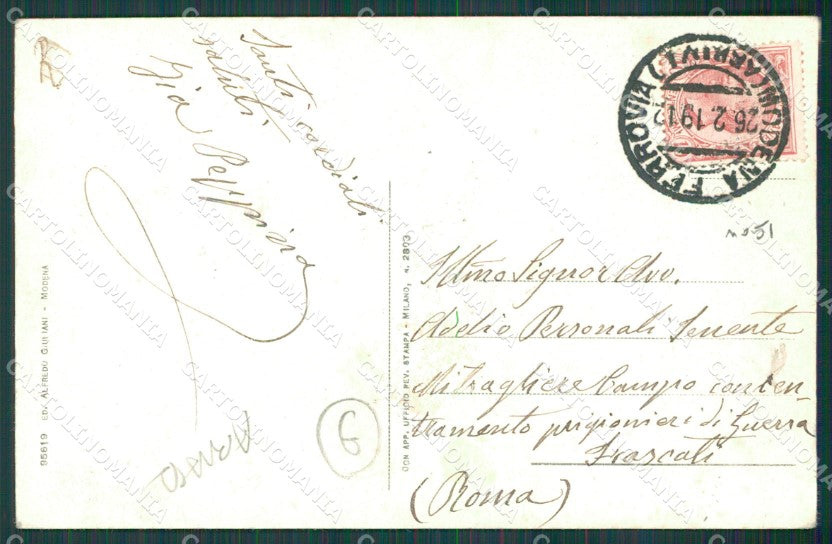 Tanti cordiali
saluti
Zia Peppina
95619 EDI. ALFREDO GIULIANI - MODENA
CON APP. UFFICIO REV. STAMPA - MILANO, N. 2803
MODENA FERROVIA (ARRIVI)
26.2.19 12
Illmo Signor Avv.
Adelio Personali Tenente
Mitragliere Campo concen-
tramento prigionieri di Guerra
Frascati
(Roma)
G
CARTOLINOMANIA